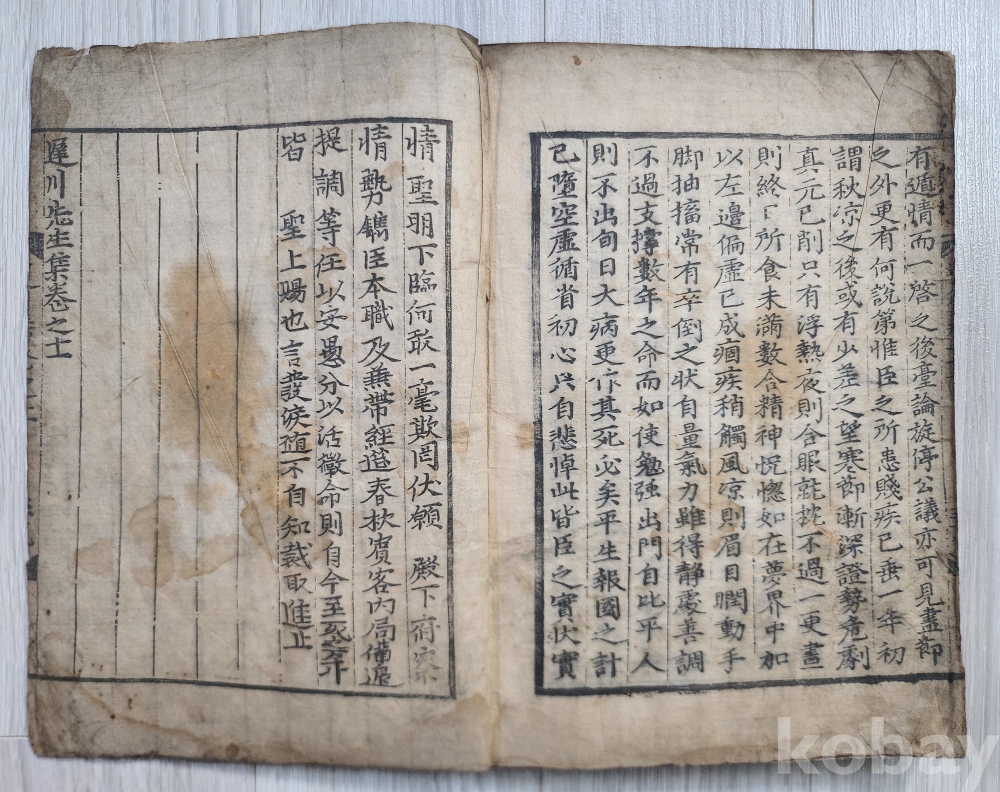 有遁情而一啓之後臺論旋停公議亦可見盡節
之外更有何說第惟臣之所患賤疾已垂一年初
謂秋凉之後或有少差之望寒節漸深證勢危劇
真元已削只有浮熱夜則合眼就枕不過一更晝
則終日所食未滿數合精神怳惚如在夢界中加
以左邊偏虛已成痼疾稍觸風凉則眉目瞤動手
脚抽搐常有卒倒之狀自量氣力雖得靜處善調
不過支撑數年之命而如使勉強出門自比平人
則不出旬日大病更作其死必矣平生報國之計
已墮空虛循省初心只自悲悼此皆臣之實狀實
情 聖明下臨何敢一毫欺罔伏願 殿下府察
情勢鐫臣本職及兼帶經筵春秋賓客內局備邊
提調等任以安愚分以活微命則自今至死莫非
皆 聖上賜也言發涙隨不自知裁取進止
遲川先生集卷之十
kobay